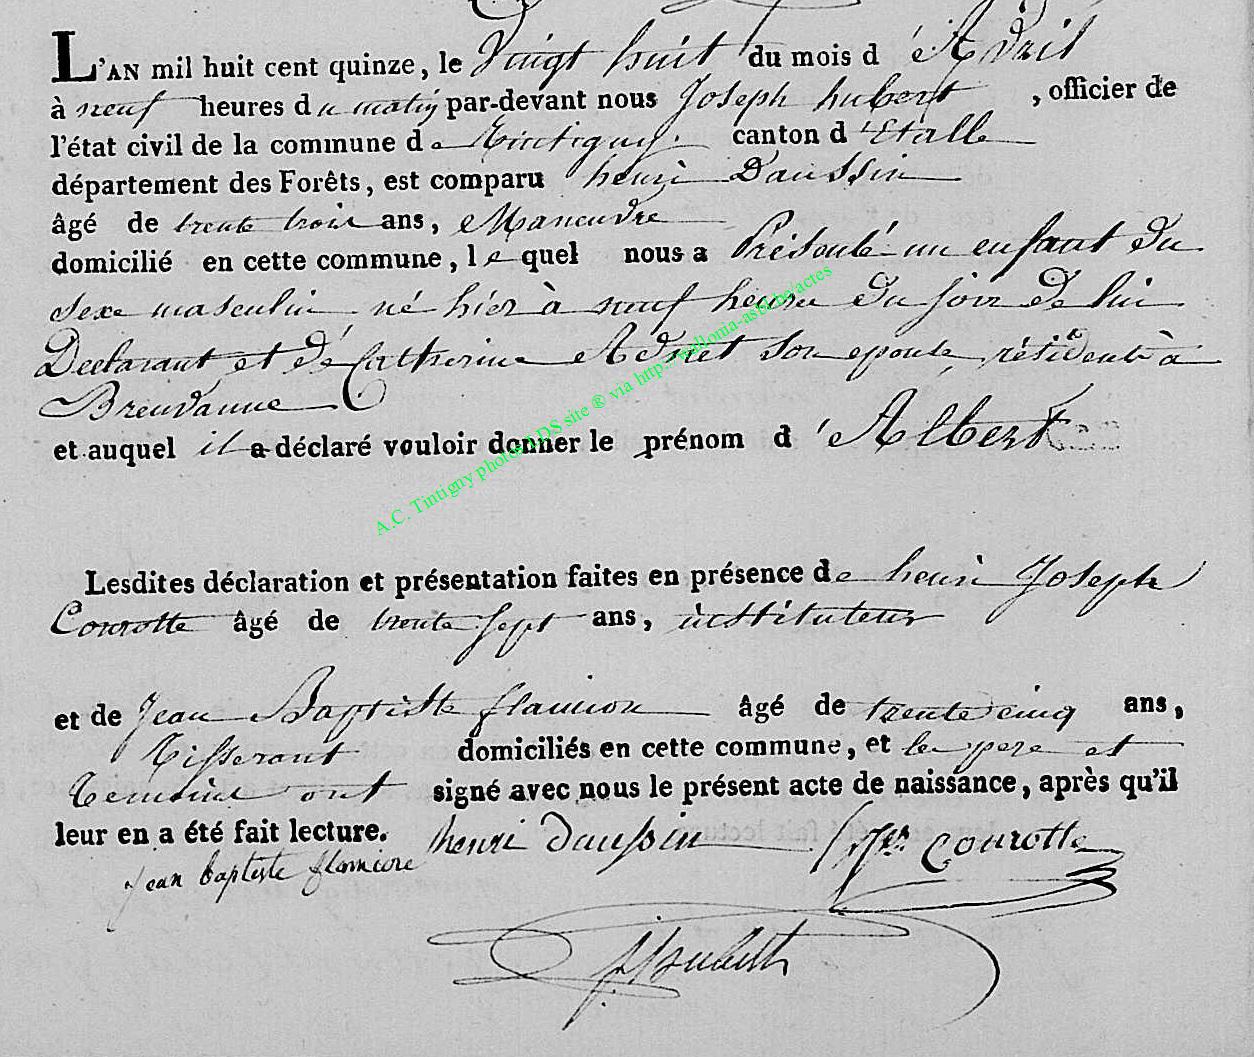 L'AN mil huit cent quinze, le Vingt huit du mois d'Avril
à neuf heures du matin par-devant nous Joseph hubert, officier de
l'état civil de la commune de Tintigny canton d'Etalle
département des Forêts, est comparu henri Daussin
âgé de trente trois ans, Maneuvre
domicilié en cette commune, lequel nous a Présenté un enfant du
Sexe masculin né hier à neuf heures du soir de lui
Declarant et de Catherine Adnet son epouse, résidents à
Breuvanne
et auquel il a déclaré vouloir donner le prénom d'Albert
A.C. Tintigny photos LDS site ® via http://wallonia-asbl.be/actes
Lesdites déclaration et présentation faites en présence de henri Joseph
Courotte âgé de trente Sept ans, instituteur
et de Jean Baptiste flamion âgé de trente cinq ans,
Tisserant domiciliés en cette commune, et le pere et
temoins ont signé avec nous le présent acte de naissance, après qu'il
leur en a été fait lecture. henri daussin Courotte
jean baptiste flamion
hubert